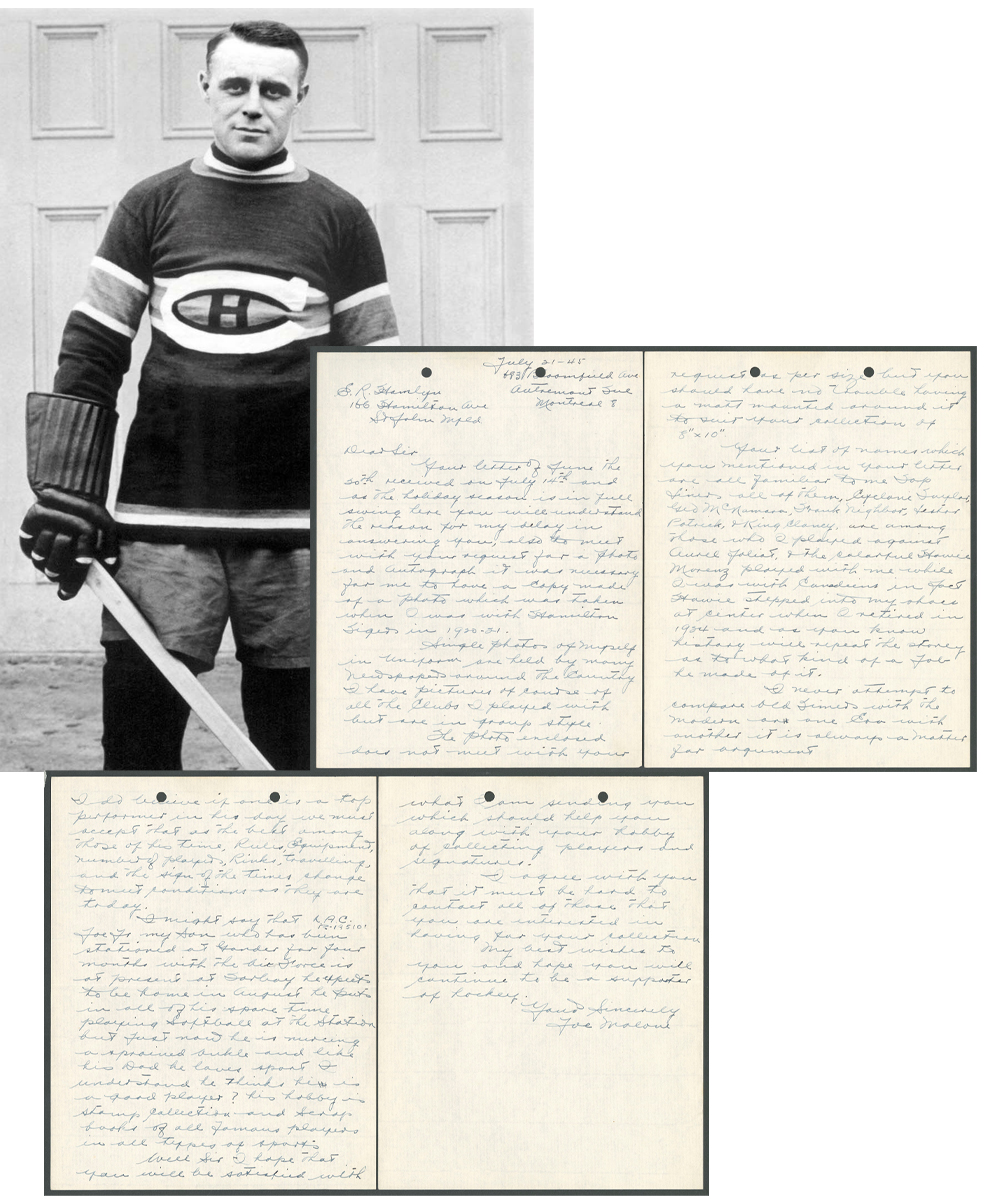 H
July 21-45
Bloomfield Ave
E. R. Hamlyn
Outremont Que
166 Hamilton Ave
Montreal 8
St John Nfld
Dear Sir
Your letter of June the
30th received on July 14th and
as the holiday season is in full
swing here you will understand
the reason for my delay in
answering you, also to meet
with your request for a photo
and autograph it was necessary
for me to have a copy made
of a photo which was taken
when I was with Hamilton
Tigers in 1920-21.
Single photos of myself
in uniform are held by many
Newspapers around the Country
I have pictures of course of
all the Clubs I played with
but are in group style.
The photo enclosed
does not meet with your
request as per size but you
should have no trouble having
a matt mounted around it
to suit your collection of
8"x10".
Your list of names which
you mentioned in your letter
are all familiar to me Top
Liners all of them, Cyclone Taylor,
Geo McNamara, Frank Neighbor, Lester
Patrick, & King Clancy, are among
those who I played against
Aurel Joliat, & the colorful Howie
Morenz played with me while
I was with Canadiens in fact
Howie stepped into my shoes
at center when I retired in
1924 and as you know
history will repeat the storey
as to what kind of a Job
he made of it.
I never attempt to
compare Old Timers with the
Modern or one Era with
another it is always a matter
for argument
I do believe if one is a top
performer in his day we must
accept that as the best among
those of his time, Rules, Equipment,
number of players, Rinks, travelling,
and the sign of the times change
to meet conditions as they are
today.
I might say that L.A.C.
Joe Jr my Son who has been
stationed at Gander for four
months with the Air Force is
at present at Torbay he expects
to be home in August he puts
in all of his spare time
playing Softball at the Station
but just now he is nursing
a sprained ankle and like
his Dad he loves sport I
understand he thinks he is
a good player? his hobby is
stamp collection and Scrap
books of all famous players
in all types of sports
Well Sir I hope that
you will be satisfied with
what I am sending you
which should help you
along with your hobby
of collecting players and
signatures.
I agree with you
that it must be hard to
contact all of those that
you are interested in
having for your collection
My best wishes to
you and hope you will
continue to be a supporter
of hockey,
Yours Sincerely
Joe Malone